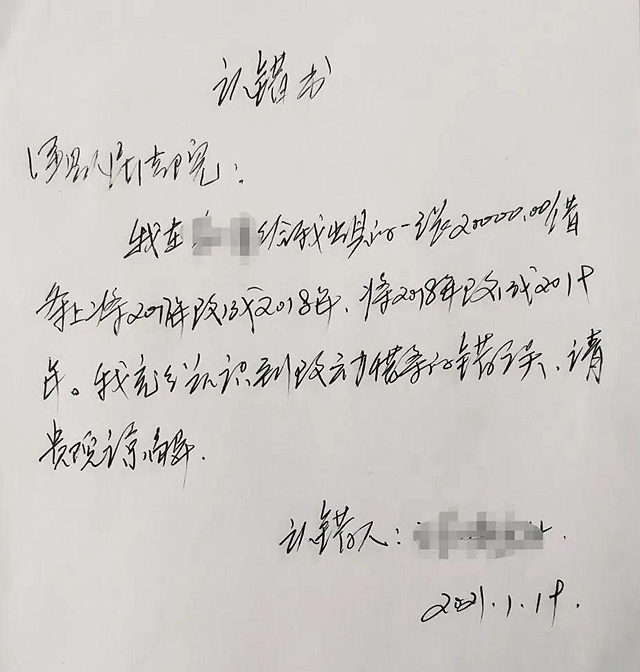 认错书
人民法院：
我在给我出具的一张20000.00借
条上将2017年改成2018年，将2018年改成2019
年。我充分认识到改动借条的错误，请
贵院谅解.
认错人：
2021.1.19.